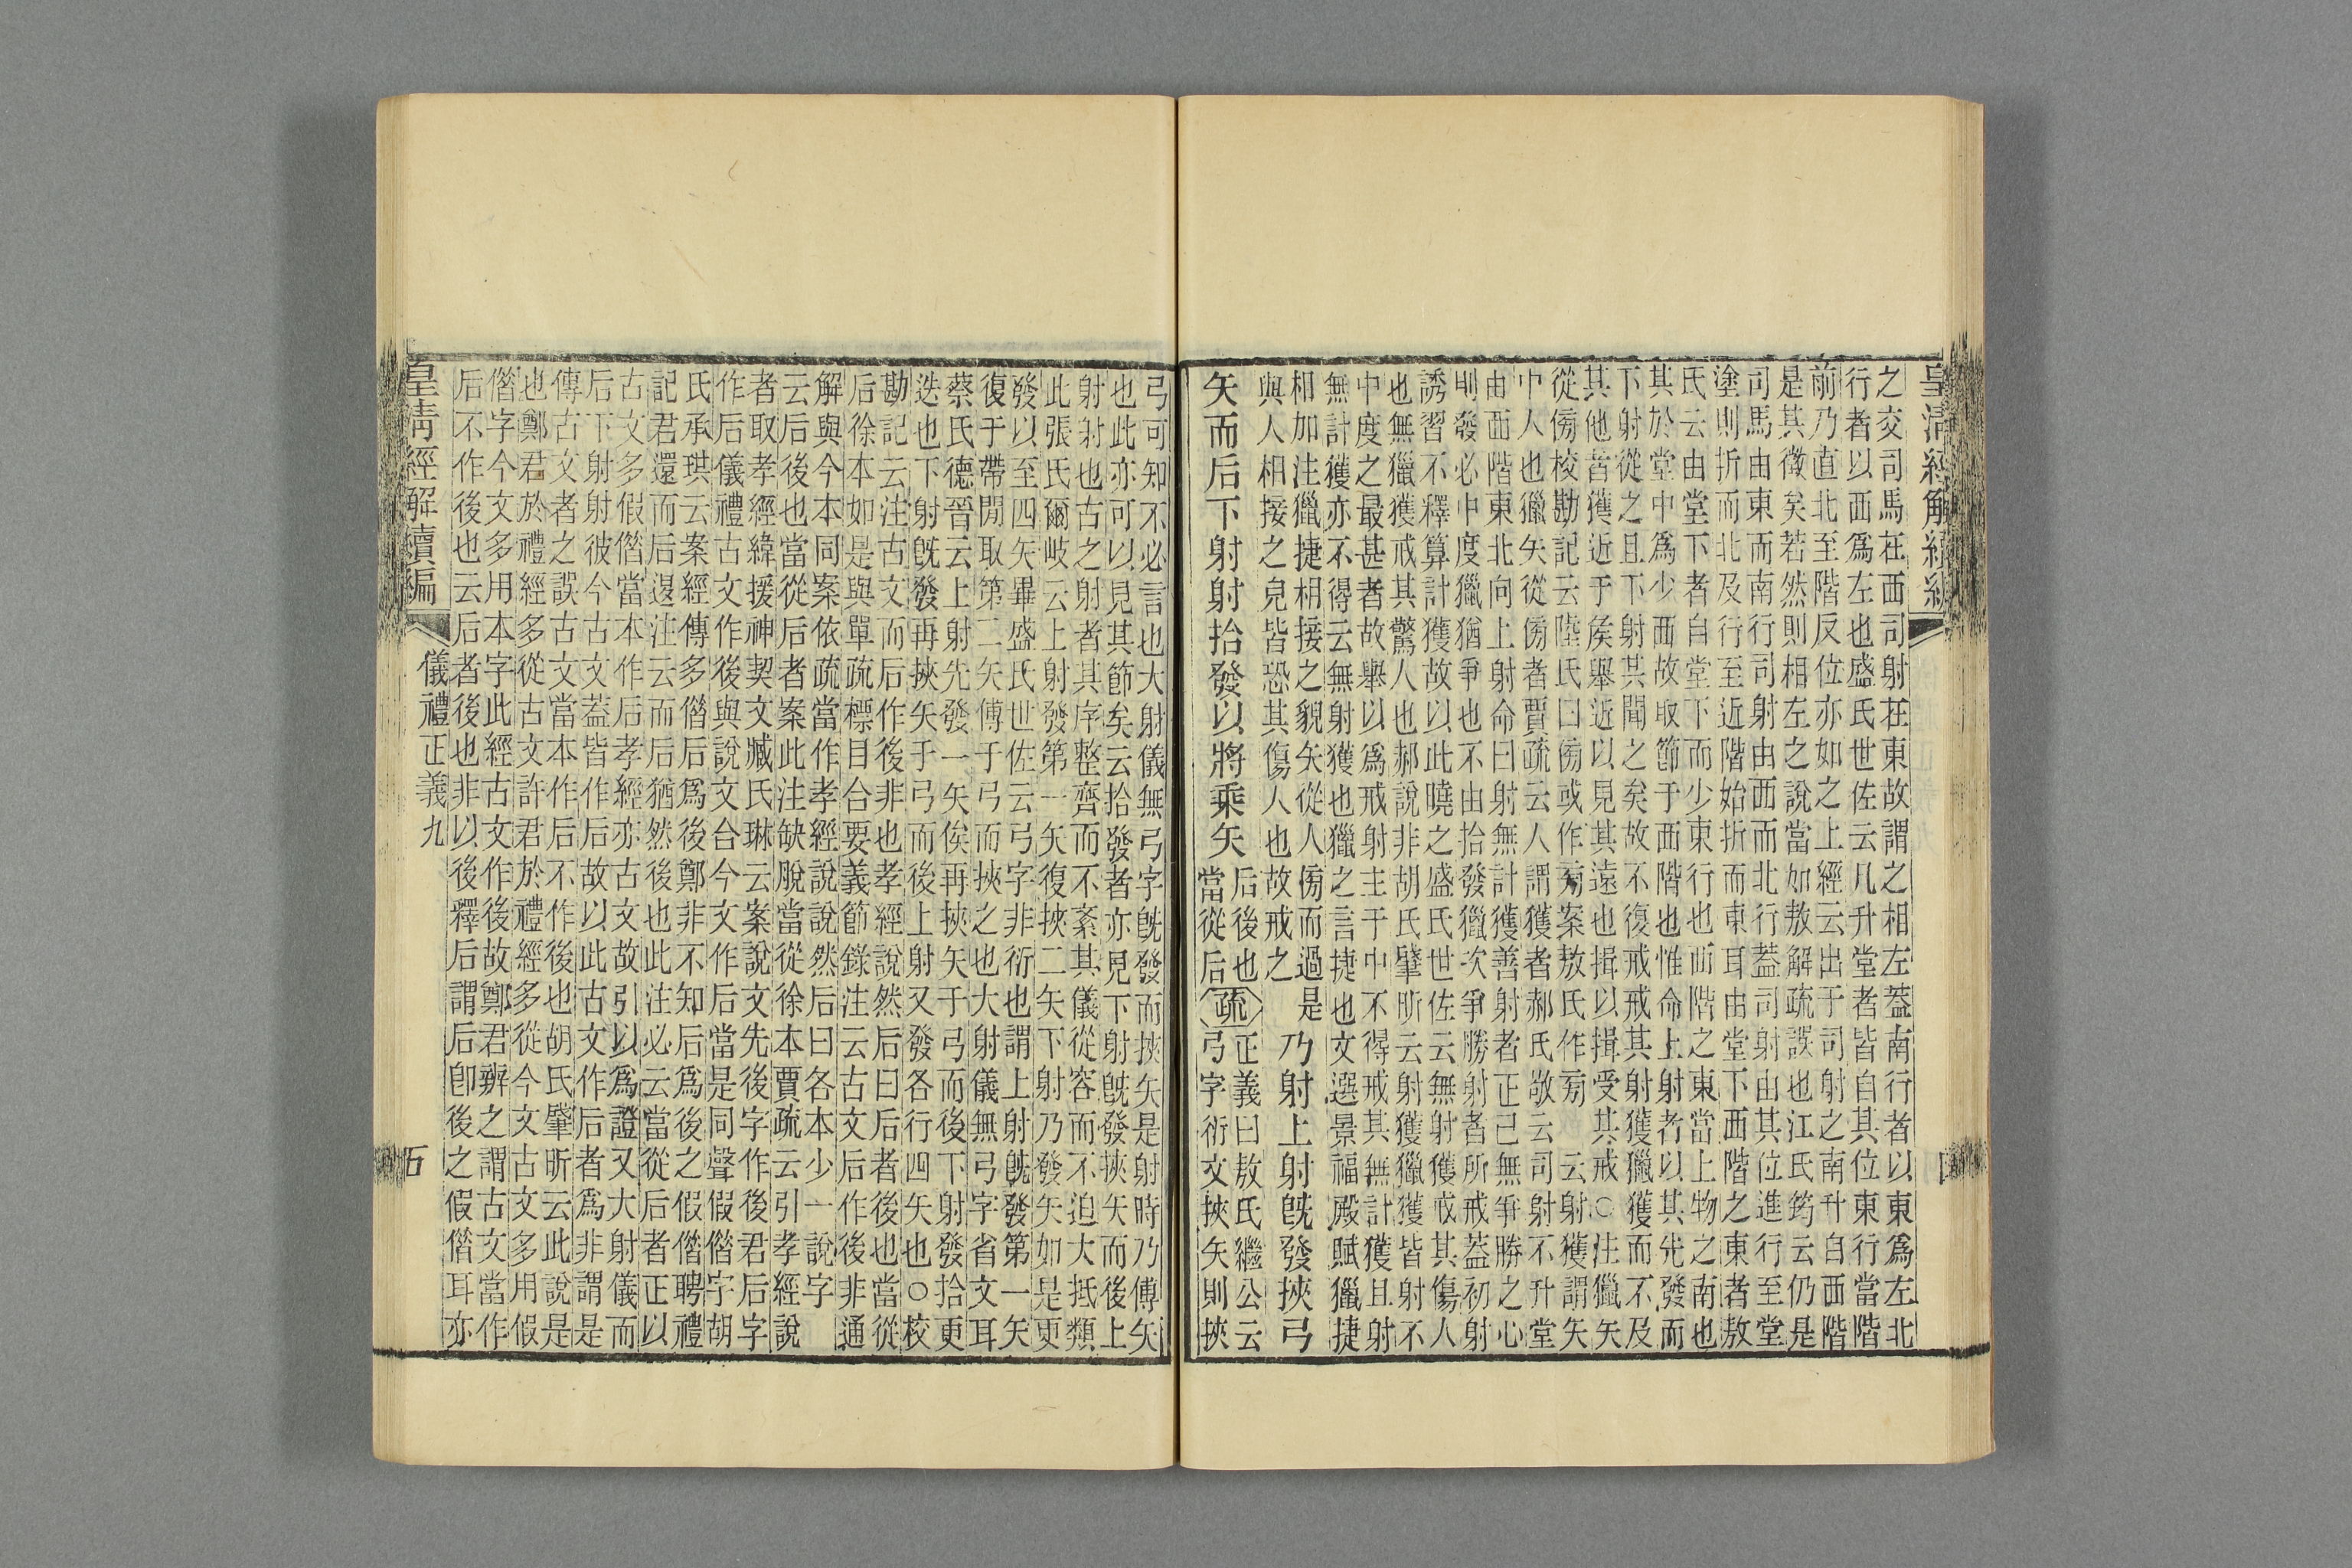 皇清經解續編
之交司馬在西司射在東故謂之相左葢南行者以東爲左北
行者以西爲左也盛氏世佐云凡升堂者皆自其位東行當階
前乃直北至階反位亦如之上經云出于司射之南升自西階
是其徵矣若然則相左之說當如敖解疏誤也江氏筠云仍是
司馬由東而南行司射由西而北行葢司射由其位進行至堂
塗則折而北及行至近階始折而東耳由堂下西階之東者敖
氏云由堂下者自堂下而少東行也西階之東當上物之南也
其於堂中爲少西故取節于西階也惟命上射者以其先發而
下射從之且下射其聞之矣故不復戒戒其射獲獵獲而不及
其他者獲近于矦舉近以見其遠也揖以揖受其戒○注獵矢
從傍校勘記云陸氏曰傍或作㫄案敖氏作㫄　云射獲謂矢
中人也獵矢從傍者賈疏云人謂獲者郝氏敬云司射不升堂
由西階東北向上射命曰射無計獲善射者正己無爭勝之心
則發必中度獵猶爭也不由拾發獵次爭勝射者所戒葢初射
誘習不釋算計獲故以此曉之盛氏世佐云無射獲戒其傷人
也無獵獲戒其驚人也郝說非胡氏肇昕云射獲獵獲皆射不
中度之最甚者故舉以爲戒射主于中不得戒其無計獲且射
無計獲亦不得云無射獲也獵之言捷也文選景福殿賦獵捷
相加注獵捷相接之貌矢從人傍而過是　乃射上射旣發挾弓
與人相接之皃皆恐其傷人也故戒之
矢而后下射射拾發以將乘矢
后後也
當從后
疏
正義曰敖氏繼公云
弓字衍文挾矢則挾
弓可知不必言也大射儀無弓字旣發而挾矢是射時乃傅矢
也此亦可以見其節矣云拾發者亦見下射旣發挾矢而後上
射射也古之射者其序整齊而不紊其儀從容而不迫大抵類
此張氏爾岐云上射發第一矢復挾二矢下射乃發矢如是更
發以至四矢畢盛氏世佐云弓字非衍也謂上射旣發第一矢
復于帶閒取第二矢傅于弓而挾之也大射儀無弓字省文耳
蔡氏德晉云上射先發一矢俟再挾矢于弓而後下射發拾更
迭也下射旣發再挾矢于弓而後上射又發各行四矢也○校
勘記云注古文而后作後非也孝經說然后曰后者後也當從
后徐本如是與單疏標目合要義節錄注云古文后作後非通
解與今本同案依疏當作孝經說說然后曰各本少一說字
云后後也當從后者案此注缺脫當從徐本賈疏云引孝經說
者取孝經緯援神契文臧氏琳云案說文先後字作後君后字
作后儀禮古文作後與說文合今文作后當是同聲假偕字胡
氏承珙云案經傳多偕后爲後鄭非不知后爲後之假偕聘禮
記君還而后退注云而后猶然後也此注必云當從后者正以
古文多假偕當本作后孝經亦古文故引以爲證又大射儀而
后下射射彼今古文葢皆作后故以此古文作后者爲非謂是
傳古文者之誤古文當本作后不作後也胡氏肇昕云此說是
也鄭君於禮經多從古文許君於禮經多從今文古文多用假
偕字今文多用本字此經古文作後故鄭君辨之謂古文當作
后不作後也云后者後也非以後釋后謂后卽後之假偕耳亦
皇清經解續編　儀禮正義九　五